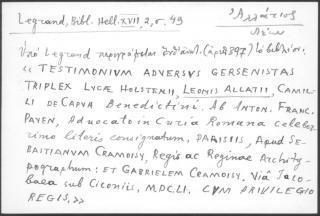 Legrand, Bibl. Hell. XVII, 2, σ. 49
Ἀλλάτιος
Λέων
Ὑπὸ Legrand περιγράφεται ἐνθ' ἀνωτ. (ἀριθ 397) τὸ βιβλίον:
« TESTIMONIUM ADVERSVS GERSENISTAS
TRIPLEX LVCÆ HOLSTENII, LEONIS ALLATII, CAMIL-
LI DE CAPVA Benedictini. Ab ANTON. FRANC.
PAYEN, Aduocato in Curia Romana celeber
rimo literis consignatum. PARISIIS, Apud SE-
BASTIANVM CRAMOISY, Regis ac Reginae Archity-
pographum: ET GABRIELEM CRAMOISY. Viâ Jaco-
baea sub Ciconiis, M.DC.LI. CVM PRIVILEGIO
REGIS. »